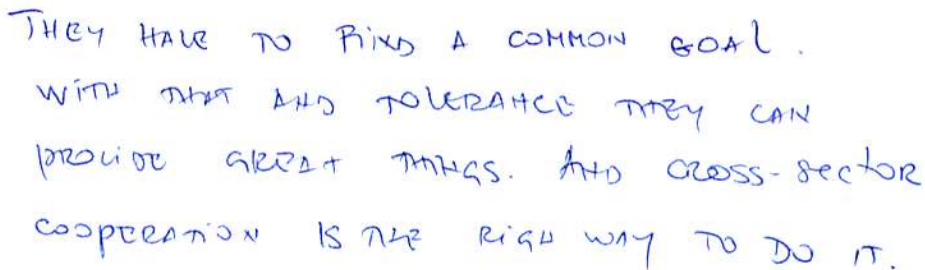 THEY HAVE TO FIND A COMMON GOAL.
WITH THAT AND TOLERANCE THEY CAN
PROVIDE GREAT THINGS. AND CROSS-SECTOR
COOPERATION IS THE RIGH WAY TO DO IT.